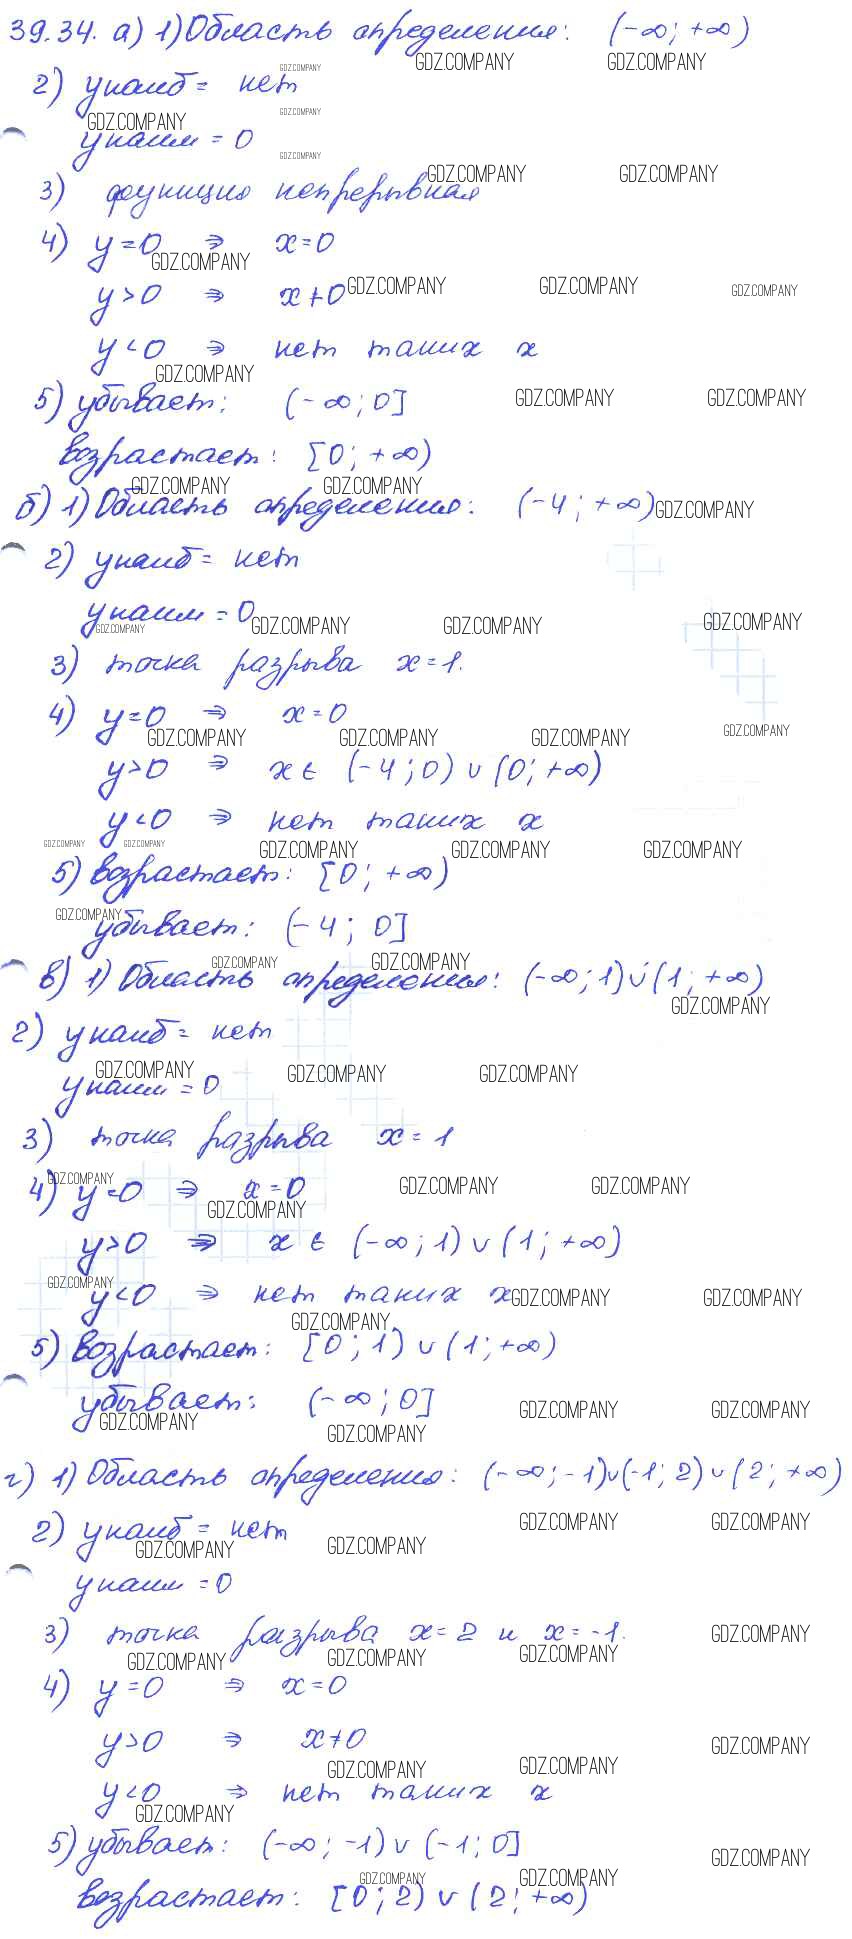 39.34. а) 1) Область определения: (-∞; +∞)
2) yнаиб = нет
yнаим = 0
3) функция непрерывная
4) y=0 ⇒ x=0
y>0 ⇒ x≠0
y<0 ⇒ нет таких x
5) убывает: (-∞; 0]
возрастает: [0; +∞)
б) 1) Область определения: (-4; +∞)
2) yнаиб = нет
yнаим = 0
3) точка разрыва x=1.
4) y=0 ⇒ x=0
y>0 ⇒ x∈ (-4; 0) ∪ (0; +∞)
y<0 ⇒ нет таких x
5) возрастает: [0; +∞)
убывает: (-4; 0]
в) 1) Область определения: (-∞; 1) ∪ (1; +∞)
2) yнаиб = нет
yнаим = 0
3) точка разрыва x=1
4) y=0 ⇒ x=0
y>0 ⇒ x ∈ (-∞; 1) ∪ (1; +∞)
y<0 ⇒ нет таких x
5) возрастает: [0; 1) ∪ (1; +∞)
убывает: (-∞; 0]
г) 1) Область определения: (-∞; -1)∪(-1; 2)∪(2; +∞)
2) yнаиб = нет
yнаим = 0
3) точка разрыва x=2 и x=-1.
4) y=0 ⇒ x=0
y>0 ⇒ x≠0
y<0 ⇒ нет таких x
5) убывает: (-∞; -1) ∪ (-1; 0]
возрастает: [0; 2) ∪ (2; +∞)
GDZ.COMPANY